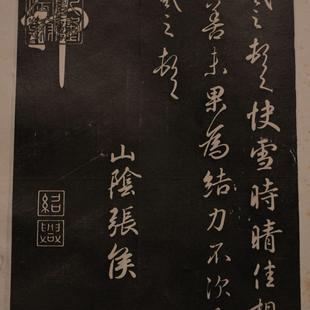 羲之頓首快雪時晴佳想
善未果為結力不次
羲之頓首
山陰張侯